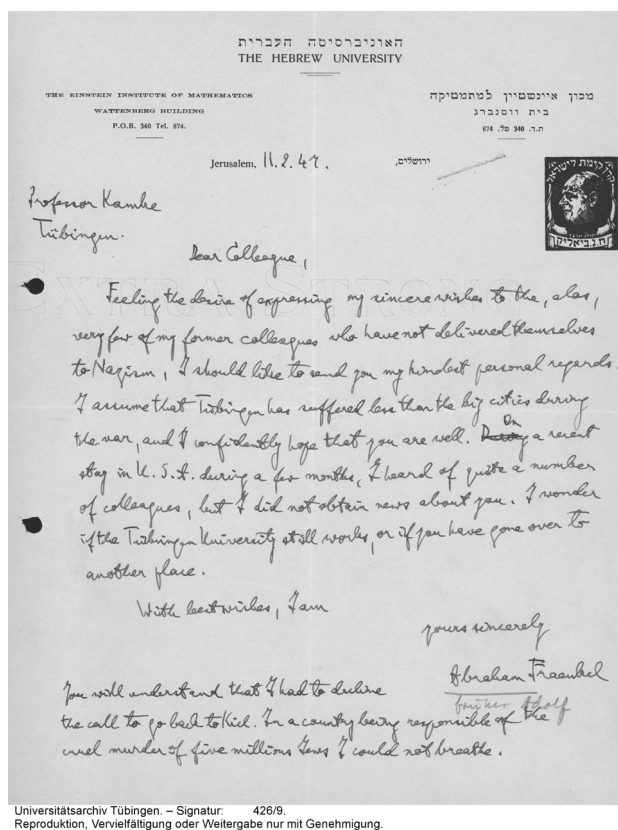 האוניברסיטה העברית
THE HEBREW UNIVERSITY
THE EINSTEIN INSTITUTE OF MATHEMATICS
WATTENBERG BUILDING
P.O.B. 340 Tel. 874.
מכון איינשטיין למתמטיקה
בית ווטנברג
ת.ד. 340 טל. 874
Jerusalem, 11.2.47.
ירושלים,
קרן קימת לישראל
ח.נ.ביאליק
Professor Kamke
Tübingen.
Dear Colleague,
EXTRA STRONG
Feeling the desire of expressing my sincere wishes to the, alas,
very few of my former colleagues who have not delivered themselves
to Nazism, I should like to send you my kindest personal regards.
I assume that Tübingen has suffered less than the big cities during
the war, and I confidently hope that you are well. On a recent
stay in U.S.A. during a few months, I heard of quite a number
of colleagues, but I did not obtain news about you. I wonder
if the Tübingen University still works, or if you have gone over to
another place.
With best wishes, I am
yours sincerely
Abraham Fraenkel
früher Adolf
You will understand that I had to decline
the call to go back to Kiel. In a country being responsible of the
cruel murder of five millions Jews I could not breathe.
Universitätsarchiv Tübingen. – Signatur: 426/9.
Reproduktion, Vervielfältigung oder Weitergabe nur mit Genehmigung.